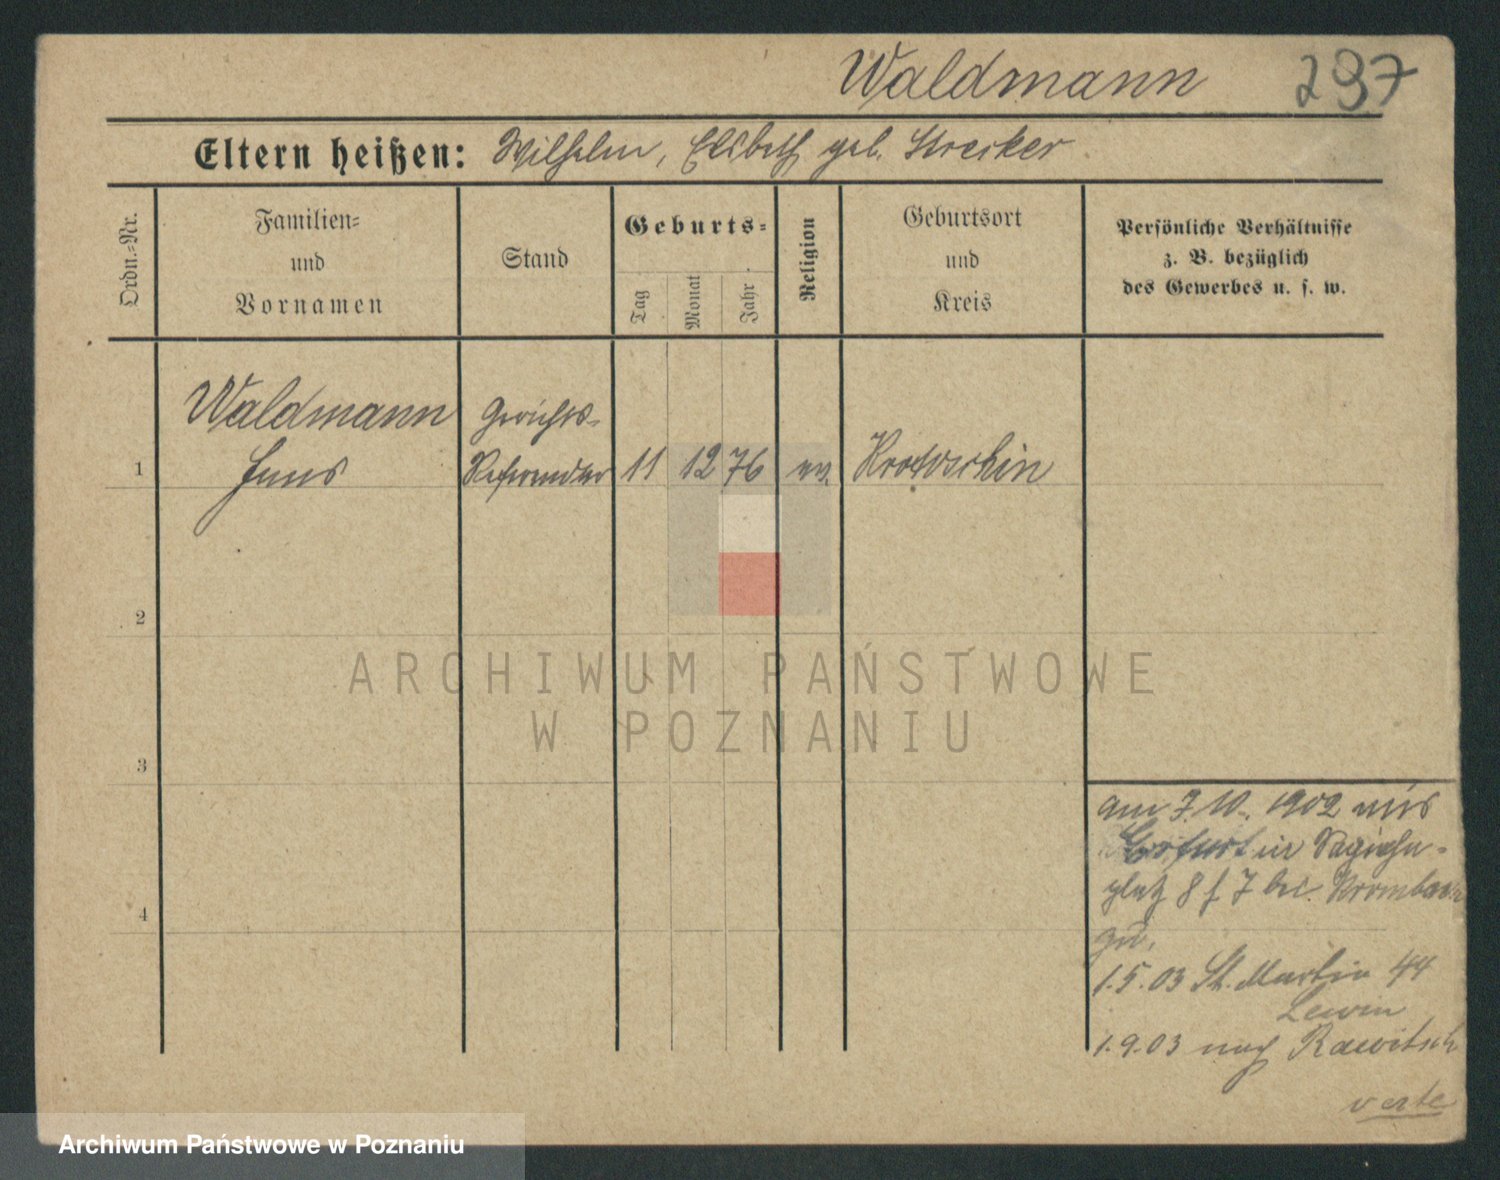 Waldmann 297
Eltern heißen: Wilhelm, Elsbeth geb. Strecker
Ordn.-Nr.
Familien-
und
Vornamen
Stand
Geburts-
Tag
Monat
Jahr
Religion
Geburtsort
und
Kreis
Persönliche Verhältnisse
z. B. bezüglich
des Gewerbes u. s. w.
Waldmann Gerichts-
1 Hans Referendar 11 12 76 ev. Krotoschin
2
3
4
am 7.10. 1902 aus
Erfurt in
platz 8 I bei
zu.
1.5.03 St. Martin 44
Lewin
1.9.03 nach Rawitsch
verte
ARCHIWUM PAŃSTWOWE
W POZNANIU
Archiwum Państwowe w Poznaniu